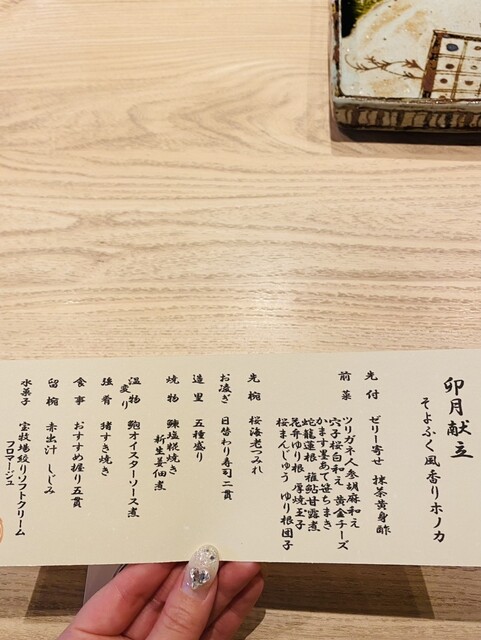 卯月献立
そよふく風香りホノカ
先付　ゼリー寄せ　抹茶黄身酢
前菜　ツリガネ人参胡麻和え
穴子桜白和え　黄金チーズ
かます墨あて笹ちまき
蛇籠蓮根　稚鮎甘露煮
花弁ゆり根　厚焼玉子
桜まんじゅう　ゆり根団子
先椀　桜海老つみれ
お凌ぎ　日替わり寿司二貫
造里　五種盛り
焼物　鰊塩糀焼き
新生姜佃煮
温物変り　鮑オイスターソース煮
強肴　猪すき焼き
食事　おすすめ握り五貫
留椀　赤出汁　しじみ
水菓子　宝牧場搾りソフトクリーム
フロマージュ